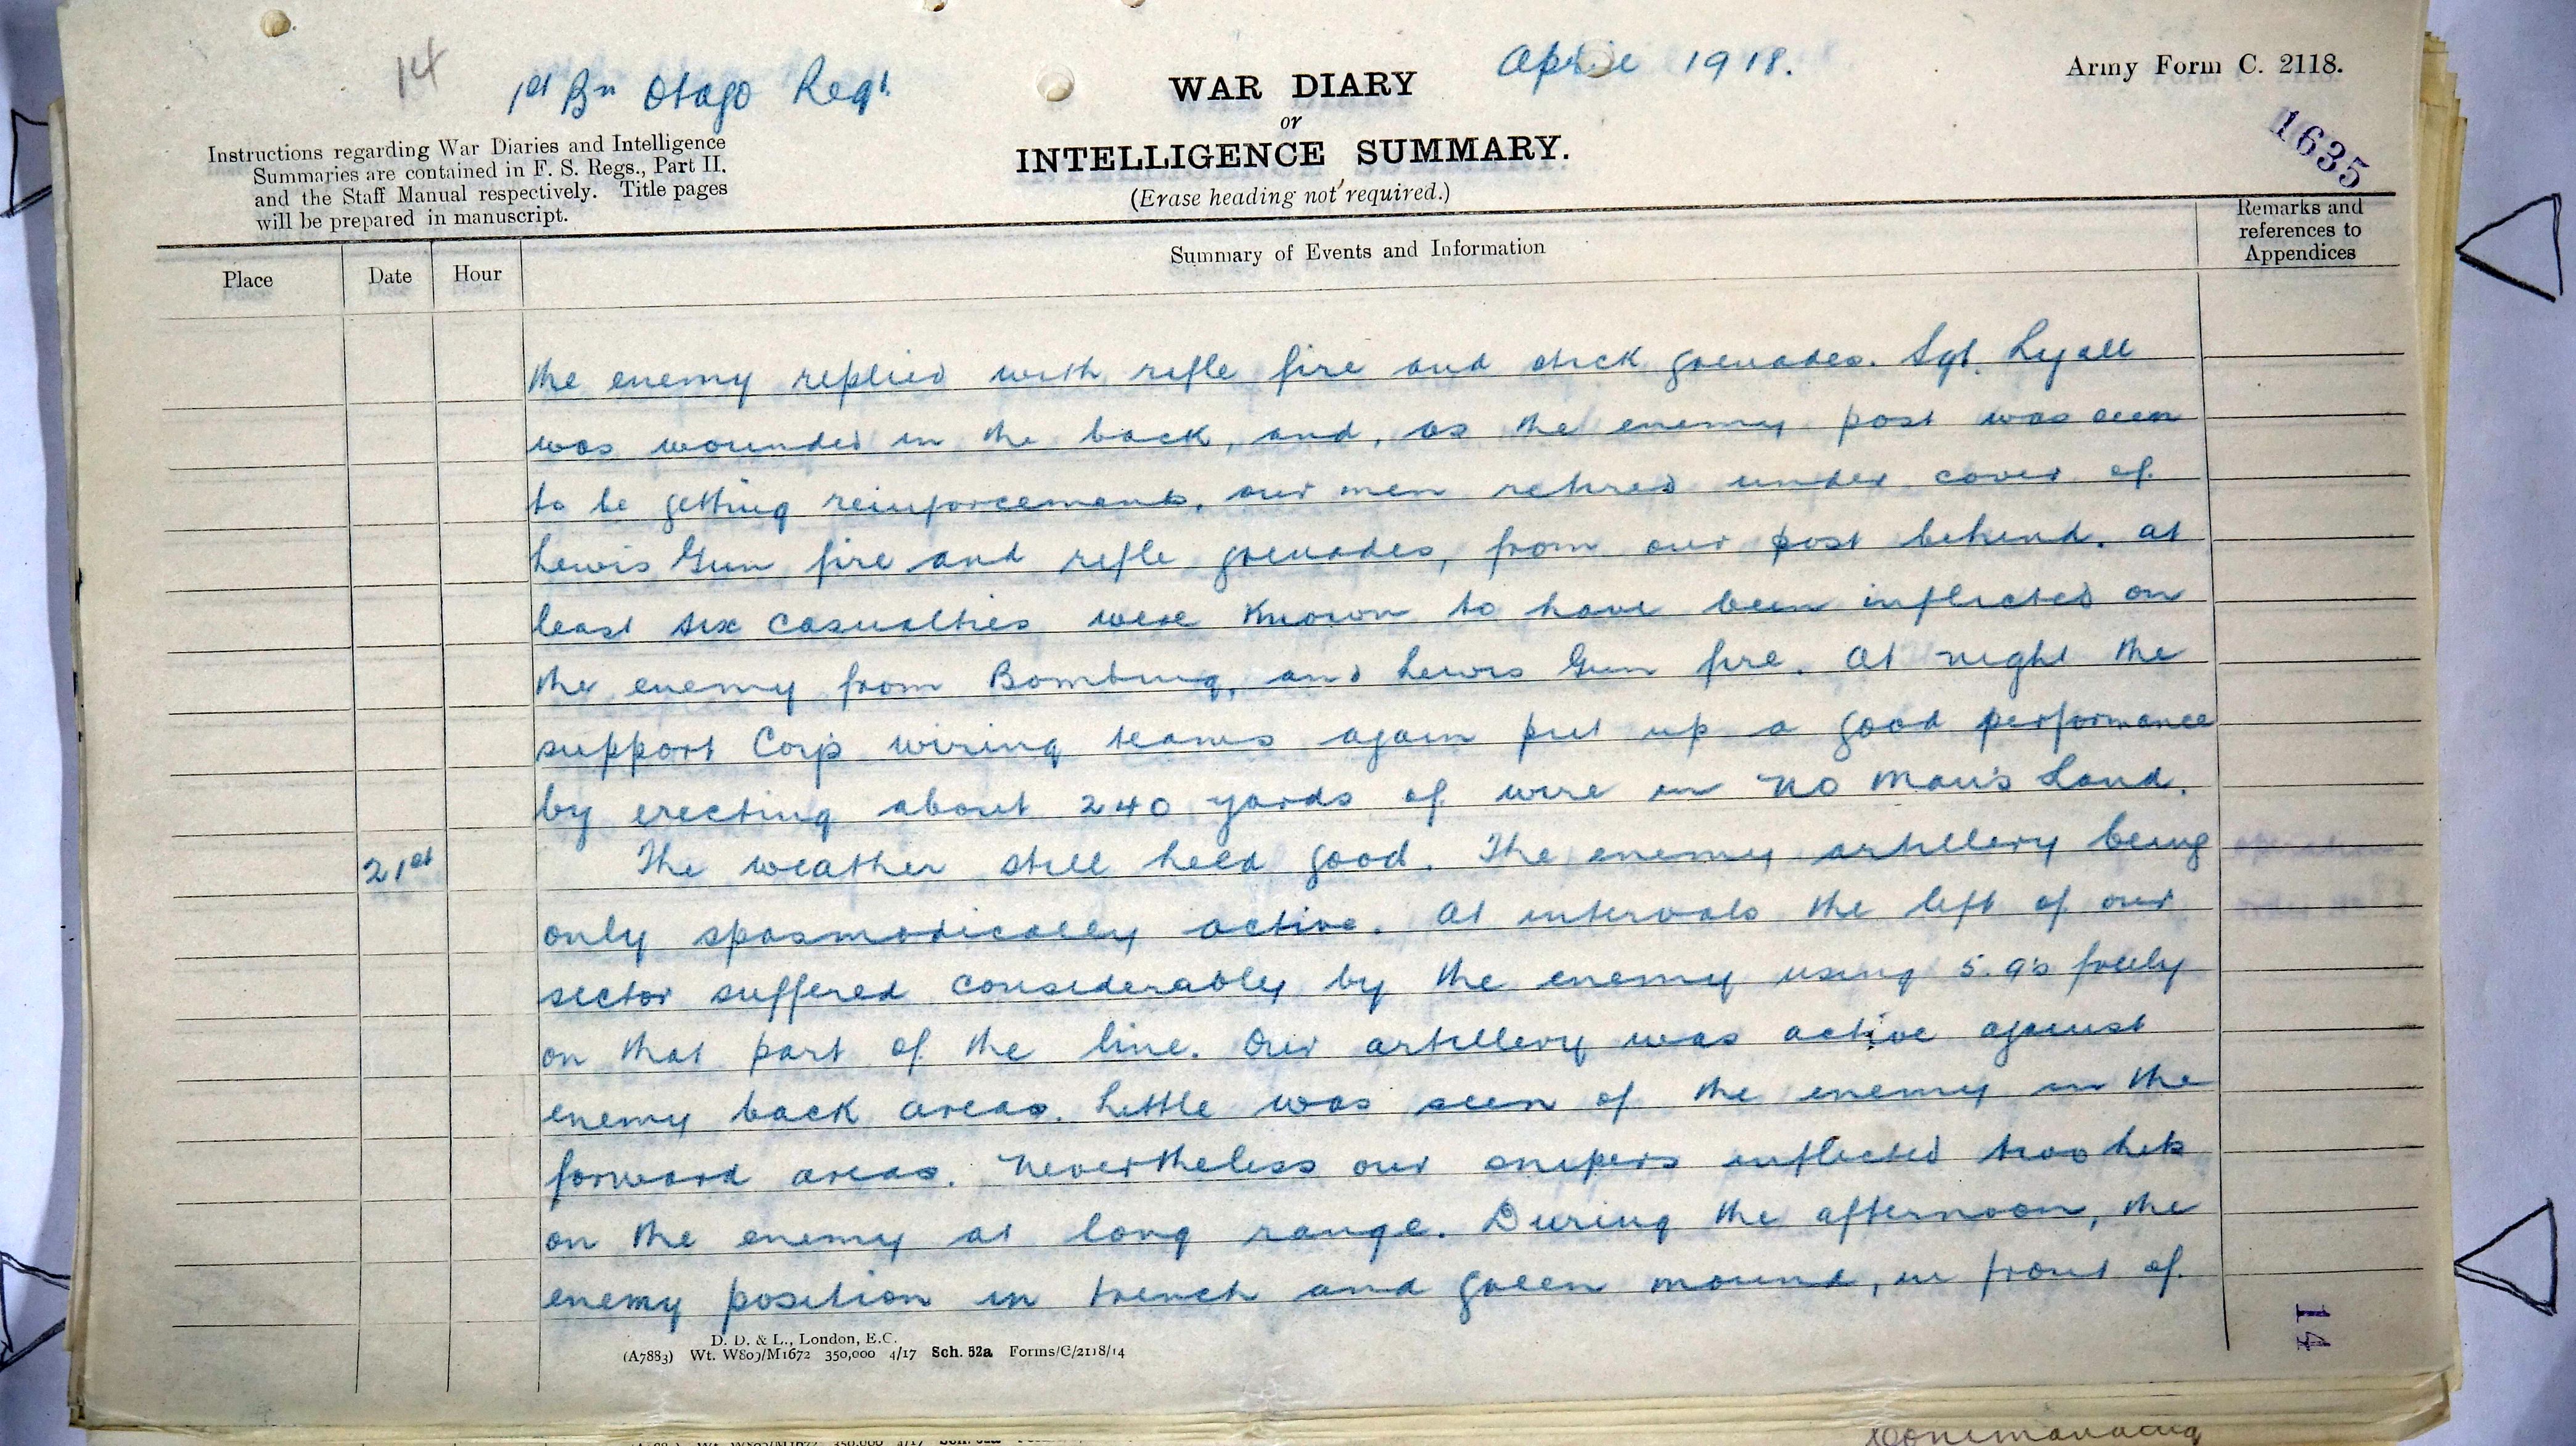 14
1st Bn Otago Regt.
WAR DIARY
or
INTELLIGENCE SUMMARY.
(Erase heading not required.)
April 1918.
Army Form C. 2118.
1635
Instructions regarding War Diaries and Intelligence
Summaries are contained in F. S. Regs., Part II.
and the Staff Manual respectively. Title pages
will be prepared in manuscript.
Place
Date
Hour
Summary of Events and Information
Remarks and
references to
Appendices
the enemy replied with rifle fire and stick grenades. Sgt. Lyall
was wounded in the back, and, as the enemy post was seen
to be getting reinforcements, our men retired under cover of
Lewis Gun fire and rifle grenades, from our post behind. At
least six casualties were known to have been inflicted on
the enemy from Bombing, and Lewis Gun fire. At night the
support Corps wiring teams again put up a good performance
by erecting about 240 yards of wire in No Man's Land.
21st The weather still held good. The enemy artillery being
only spasmodically active. At intervals the left of our
sector suffered considerably by the enemy using 5.9's freely
on that part of the line. Our artillery was active against
enemy back areas. Little was seen of the enemy in the
forward areas. Nevertheless our snipers inflicted two hits
on the enemy at long range. During the afternoon, the
enemy position in trench and green mound, in front of
D. D. & L., London, E.C.
(A7883) Wt. W809/M1672 350,000 4/17 Sch. 52a Forms/C/2118/14
14
Commanding